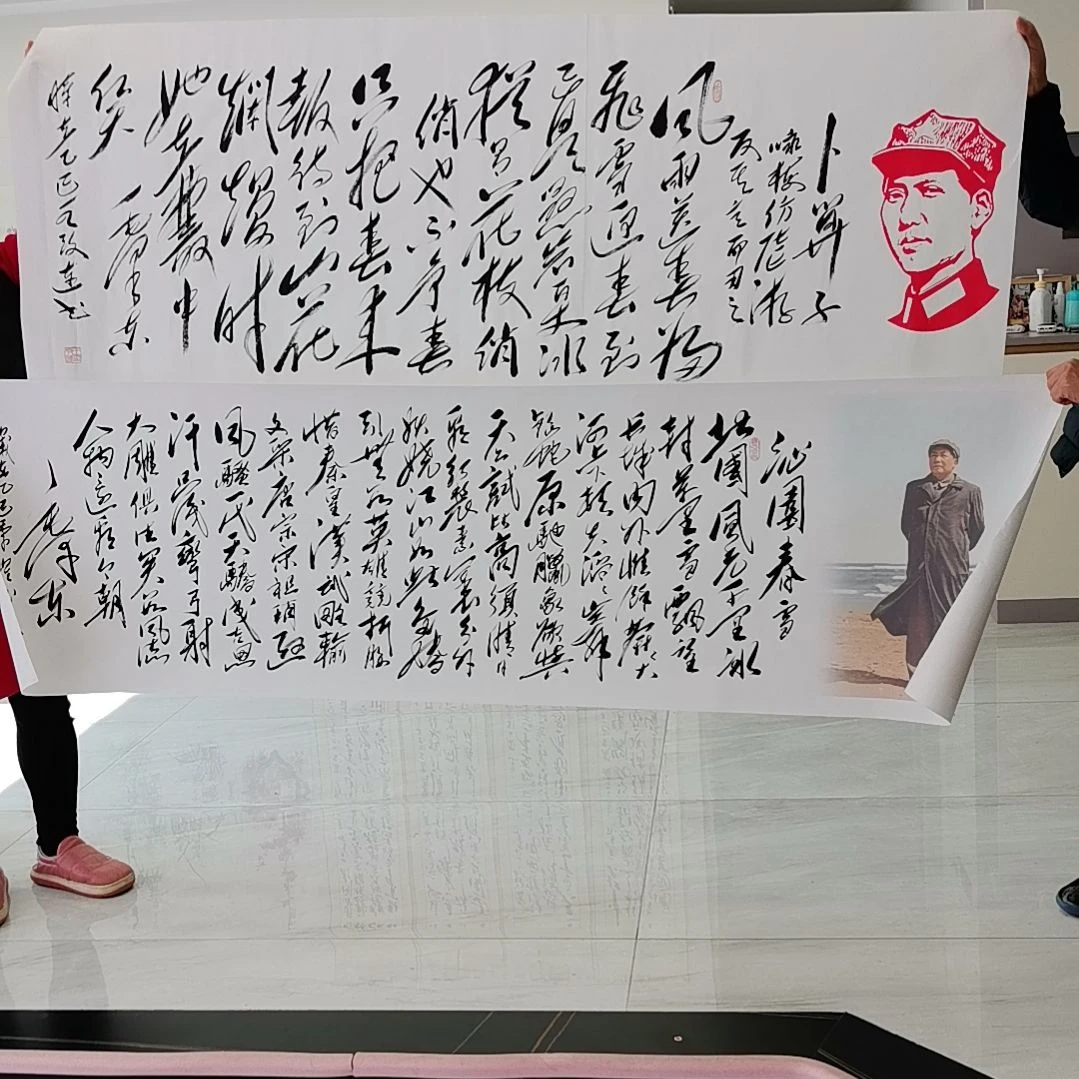 卜算子
咏梅仿陆游
反其意而用之
风雨送春归
飞雪迎春到
已是悬崖百丈冰
犹有花枝俏
俏也不争春
只把春来
报待到山花
烂熳时
她在丛中
笑
毛泽东
沁园春雪
北国风光千里冰
封万里雪飘望
长城内外惟余莽莽大
河上下顿失滔滔山舞
银蛇原驰腊象欲与
天公试比高须晴日
看红装素裹分外
妖娆江山如此多娇
引无数英雄竞折腰
惜秦皇汉武略输
文采唐宗宋祖稍逊
风骚一代天骄成吉思
汗只识弯弓射
大雕俱往矣数风流
人物还看今朝
毛泽东